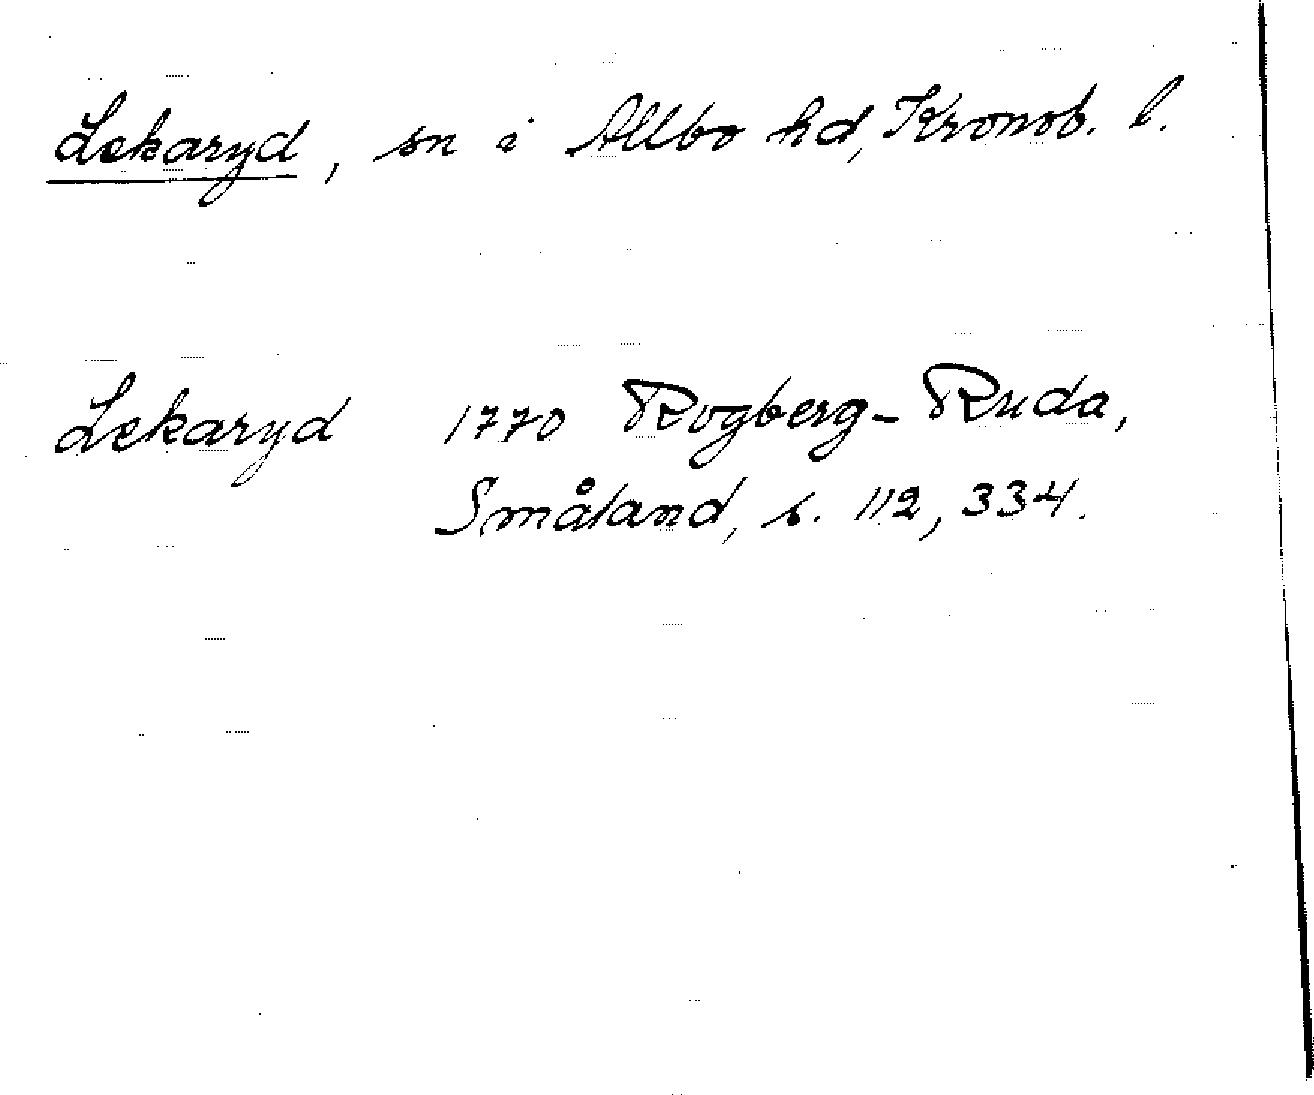 Lekaryd, sn i Allbo hd, Kronob. l.
Lekaryd 1770 Rogberg-Ruda,
Småland, s. 112, 334.